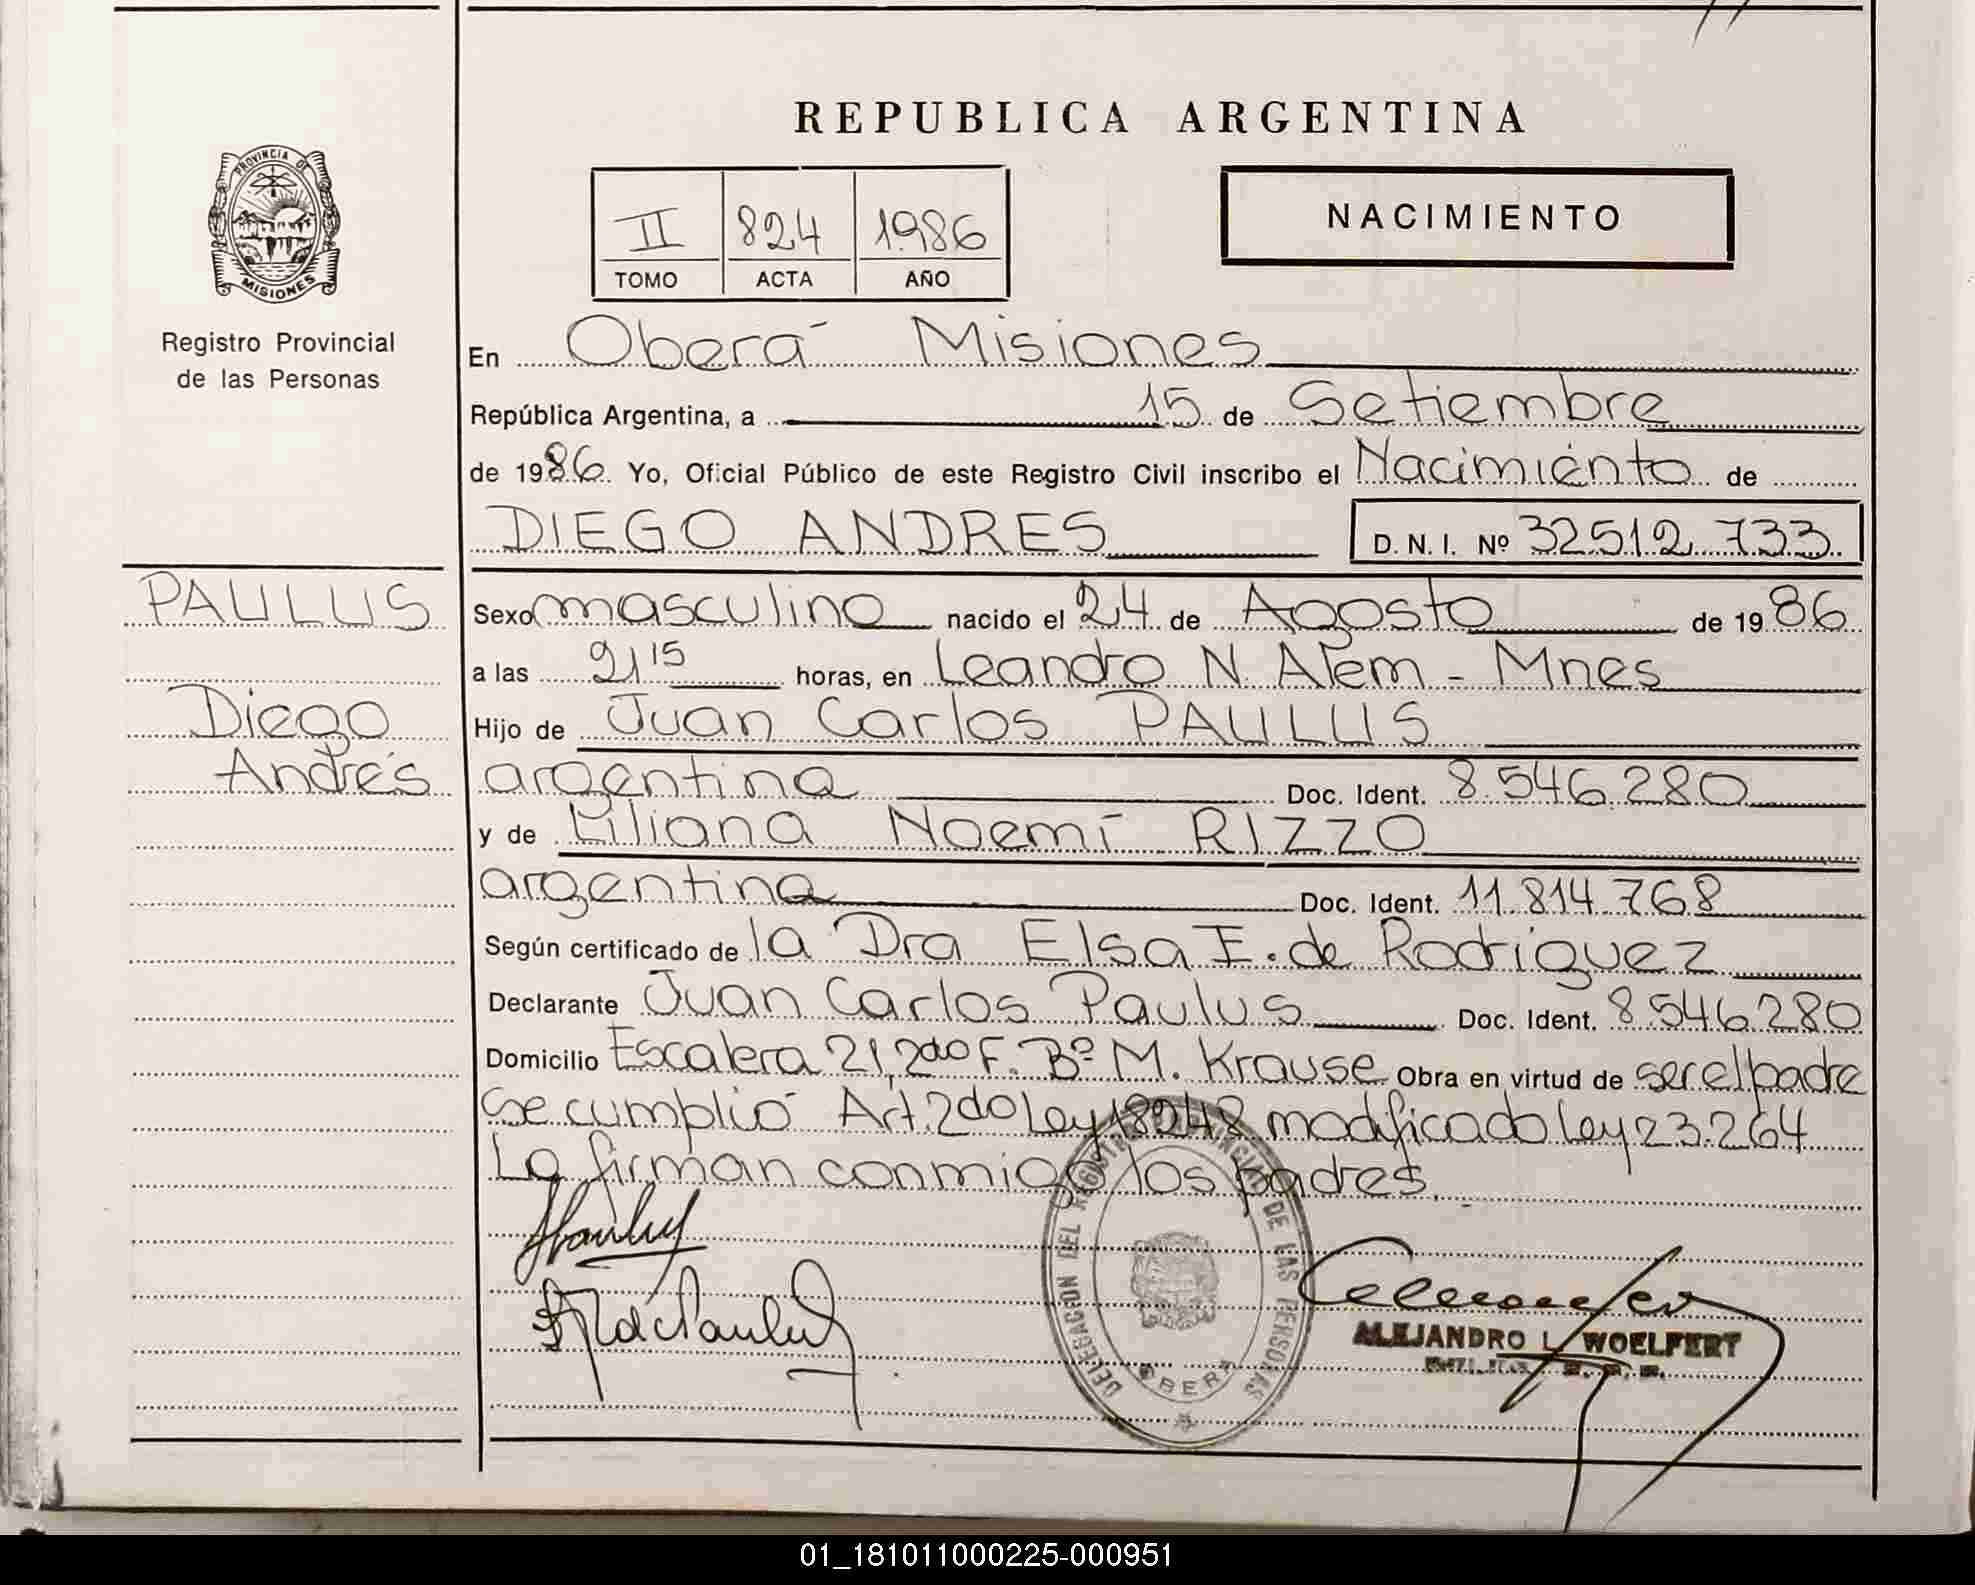 REPUBLICA ARGENTINA
PROVINCIA DE
MISIONES
Registro Provincial
de las Personas
II 824 1986
TOMO ACTA AÑO
NACIMIENTO
En Oberá Misiones
República Argentina, a 15 de Setiembre
de 1986. Yo, Oficial Público de este Registro Civil inscribo el Nacimiento de
DIEGO ANDRES D. N. I. Nº 32512.733
PAULUS
Diego
Andrés
Sexo masculino nacido el 24 de Agosto de 1986
a las 21 15 horas, en Leandro N. Alem - Mnes
Hijo de Juan Carlos PAULUS
argentina Doc. Ident. 8.546.280
y de Liliana Noemí RIZZO
argentina Doc. Ident. 11.814.768
Según certificado de la Dra Elsa I. de Rodriguez
Declarante Juan Carlos Paulus Doc. Ident. 8.546.280
Domicilio Escalera 21, 2do F. Bº M. Krause Obra en virtud de ser el padre
Se cumplió Art. 2do Ley 18248 modificado Ley 23.264
Lo firman conmigo los padres.
DELEGACION DEL REGISTRO PROVINCIAL DE LAS PERSONAS
OBERA
ALEJANDRO L. WOELFERT
01_181011000225-000951